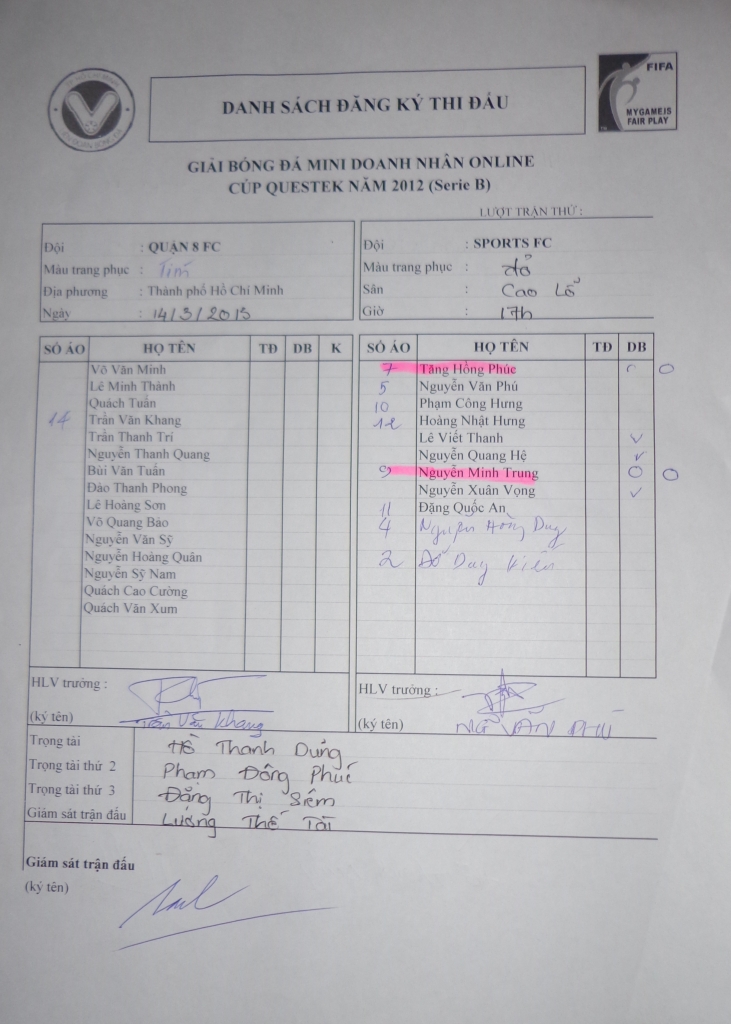 DANH SÁCH ĐĂNG KÝ THI ĐẤU
FIFA
MY GAME IS
FAIR PLAY
GIẢI BÓNG ĐÁ MINI DOANH NHÂN ONLINE
CÚP QUESTEK NĂM 2012 (Serie B)
LƯỢT TRẬN THỨ :
Đội : QUẬN 8 FC
Màu trang phục : Tím
Địa phương : Thành phố Hồ Chí Minh
Ngày : 14/3/2013
Đội : SPORTS FC
Màu trang phục : đỏ
Sân : Cao Lỗ
Giờ : 17h
SỐ ÁO HỌ TÊN TĐ DB K
Võ Văn Minh
Lê Minh Thành
Quách Tuấn
14 Trần Văn Khang
Trần Thanh Trí
Nguyễn Thanh Quang
Bùi Văn Tuấn
Đào Thanh Phong
Lê Hoàng Sơn
Võ Quang Bảo
Nguyễn Văn Sỹ
Nguyễn Hoàng Quân
Nguyễn Sỹ Nam
Quách Cao Cường
Quách Văn Xum
SỐ ÁO HỌ TÊN TĐ DB
7 Tăng Hồng Phúc O O
5 Nguyễn Văn Phú
10 Phạm Công Hưng
12 Hoàng Nhật Hưng
Lê Viết Thanh v
Nguyễn Quang Hệ v
9 Nguyễn Minh Trung O O
Nguyễn Xuân Vọng v
11 Đặng Quốc An
4 Nguyễn Hồng Duy
2 Đỗ Duy Kiên
HLV trưởng :
(ký tên) Trần Văn Khang
HLV trưởng :
(ký tên) NG VĂN PHÚ
Trọng tài Hồ Thanh Dũng
Trọng tài thứ 2 Phạm Đông Phúc
Trọng tài thứ 3 Đặng Thị Siếm
Giám sát trận đấu Lương Thế Tài
Giám sát trận đấu
(ký tên)